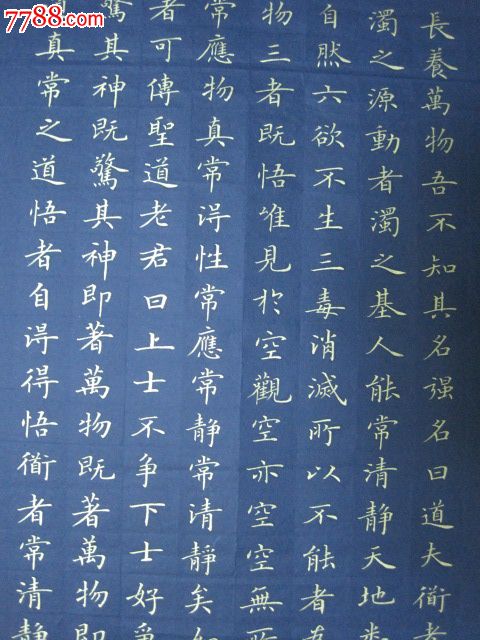 7788.com
長養萬物吾不知其名强名曰道夫衜者
濁之源動者濁之基人能常清靜天地
自然六欲不生三毒消滅所以不能者
物三者既悟唯見扵空觀空亦空空無所
常應物真常淂性常應常靜常清靜矣如
者可傳聖道老君曰上士不争下士好爭
驚其神既驚其神即著萬物既著萬物即
真常之道悟者自淂得悟衜者常清靜